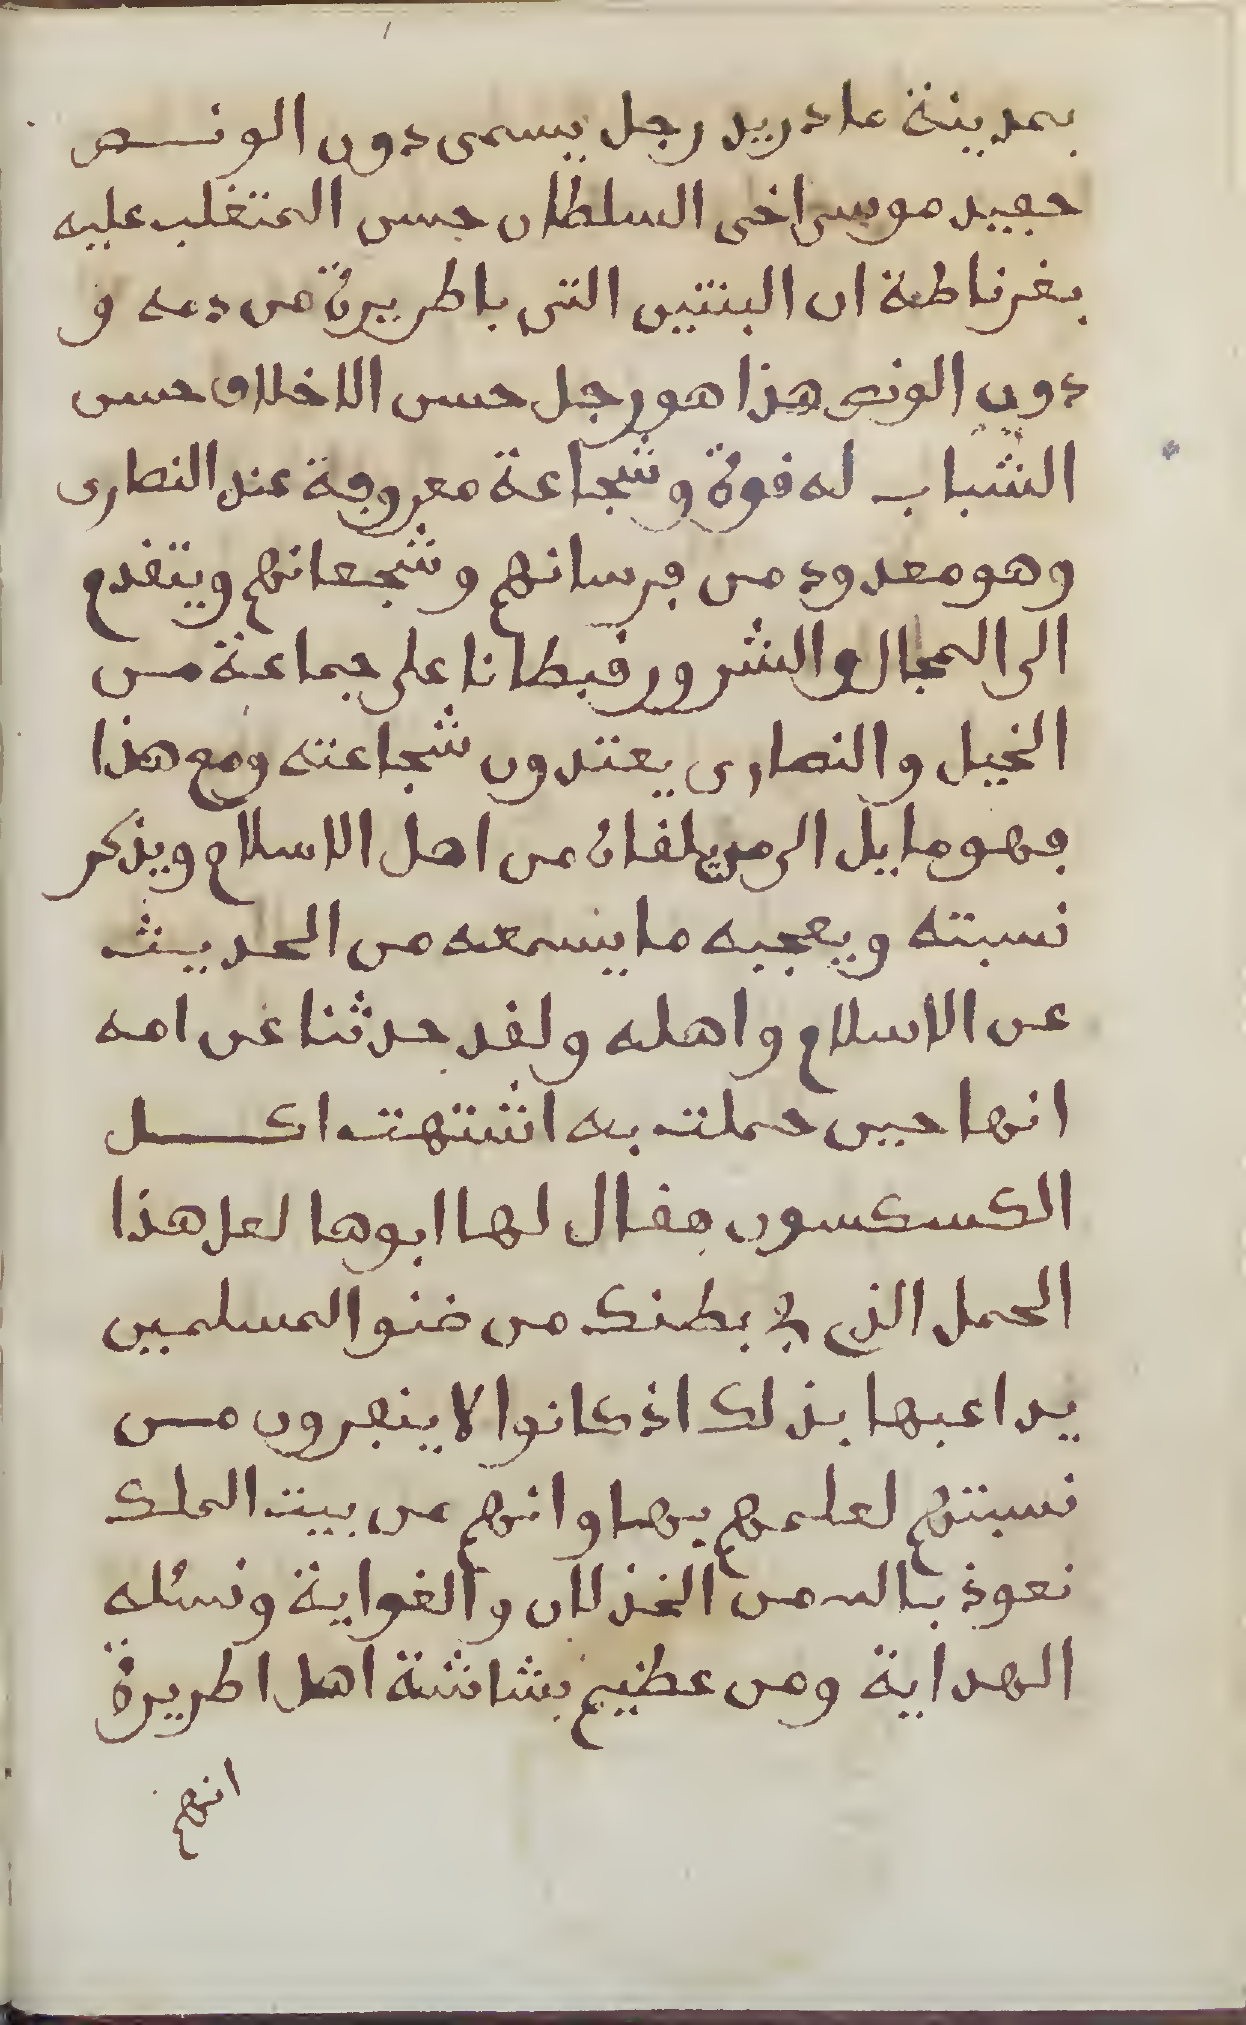 بمدينة مادريد رجل يسمى دون الونص
حفيد موسى اخى السلطان حسن المتغلب عليه
بغرناطة ان البنتين التى باطريرة من دمه و
دون الونص هذا هو رجل حسن الاخلاق حسن
الشباب له قوة وشجاعة معروفة عند النصارى
وهو معدود من فرسانهم وشجعانهم ويتقدم
الى المجال والشرور قبطانا على جماعة من
الخيل والنصارى يعتدون شجاعته ومع هذا
فهو مايل الى من يلقاه من اهل الاسلام ويذكر
نسبته ويعجبه ما يسمعه من الحديث
عن الاسلام واهله ولقد حدثنا عن امه
انها حين حملت به اشتهت اكل
الكسكسون فقال لها ابوها لعل هذا
الحمل الذي في بطنك من ضنو المسلمين
يداعبها بذلك اذ كانوا لا ينفرون من
نسبتهم لعلمهم بها وانهم من بيت الملك
نعوذ بالله من الخذلان والغواية ونسئله
الهداية ومن عظيم بشاشة اهل اطريرة
انهم